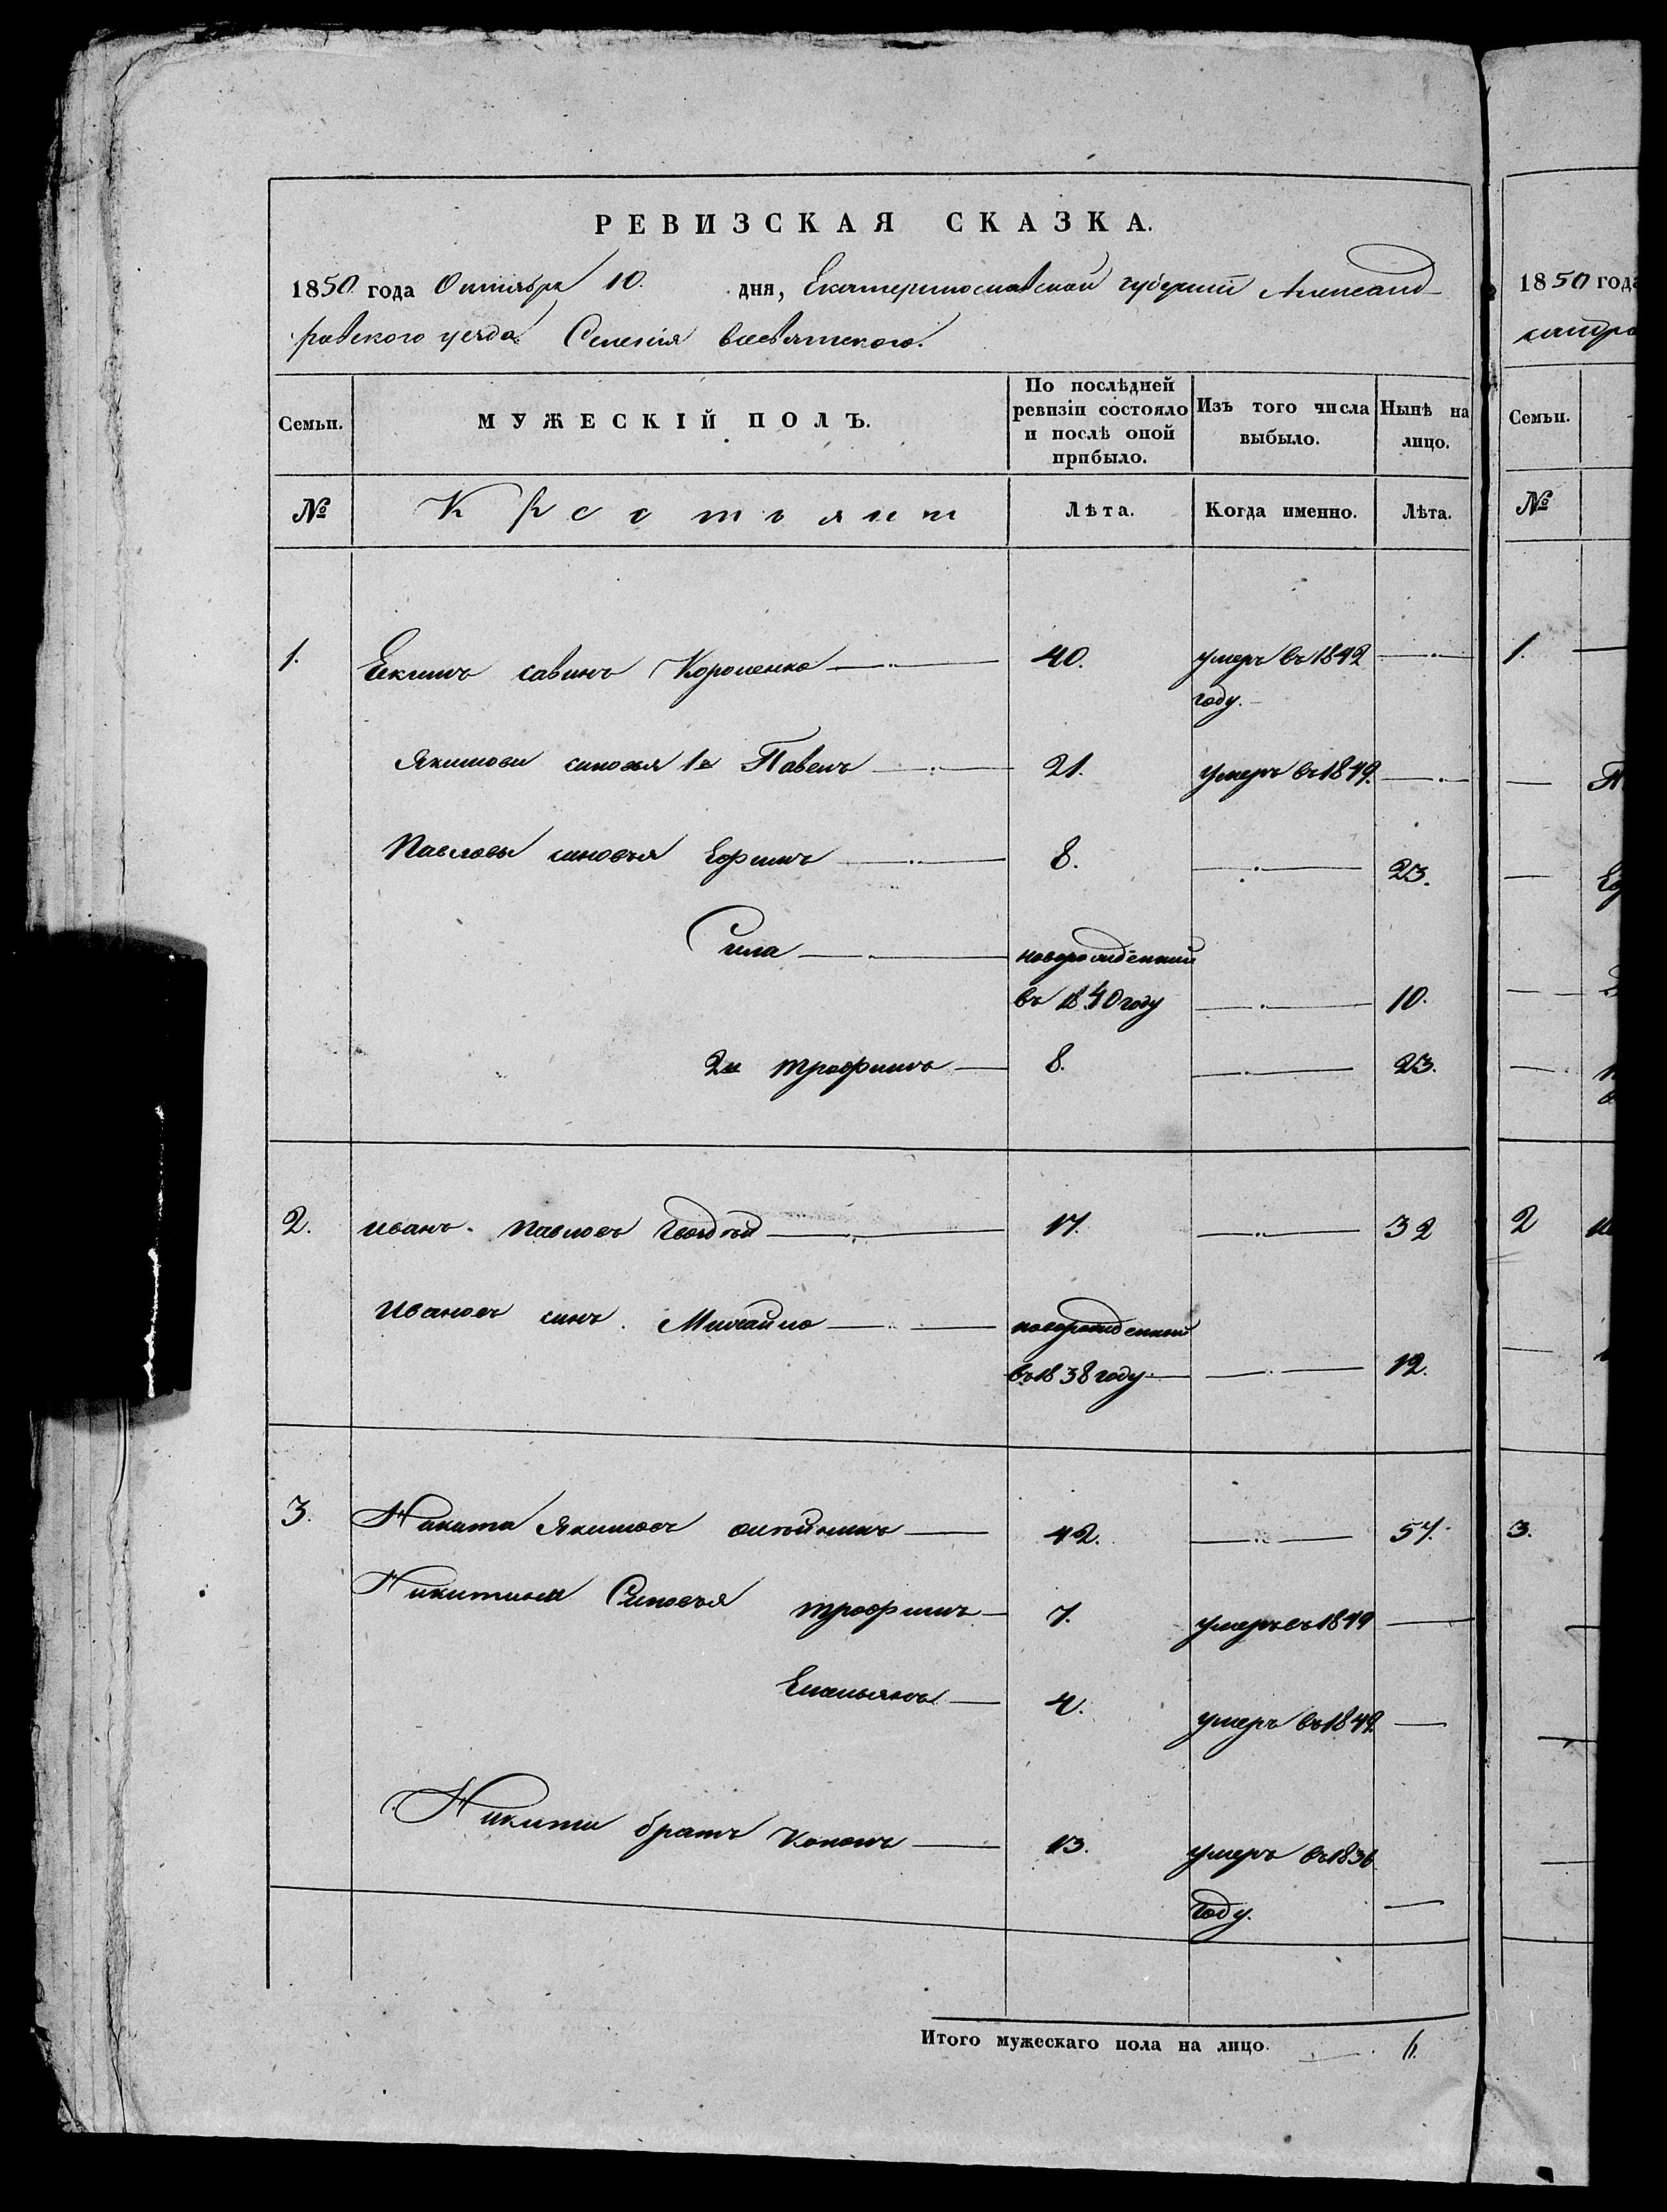 РЕВИЗСКАЯ СКАЗКА.
1850 года Октября 10. дня, Екатеринославской губернии Александ-
ровского уезда Селения всесвятского.
Семьи. МУЖЕСКІЙ ПОЛЪ. По послѣдней ревизіи состояло и послѣ оной прибыло. Изъ того числа выбыло. Нынѣ на лицо.
№ Крестьяни Лѣта. Когда именно. Лѣта.
1. Екимъ савинъ 40. умеръ въ 1842
году.
Якимови синовья 1й Павелъ 21. умеръ въ 1849.
Павловы синовья Ефимъ 8. 23.
Сила новорожденний
въ 1840 году 10.
2й трофимъ 8. 23.
2. иванъ Павловъ 17. 32
Ивановъ синъ Михайло новорожденний
въ 1838 году 12.
3. Никита Якимовъ олейникъ 42. 57.
Никитини Синовья трофимъ 7. умеръ въ 1849
Емельянъ 4. умеръ въ 1849.
Никити братъ Кононъ 13. умеръ въ 1836
году.
Итого мужескаго пола на лицо. 6.
1850 года
1.
2
3.
Семьи.
№